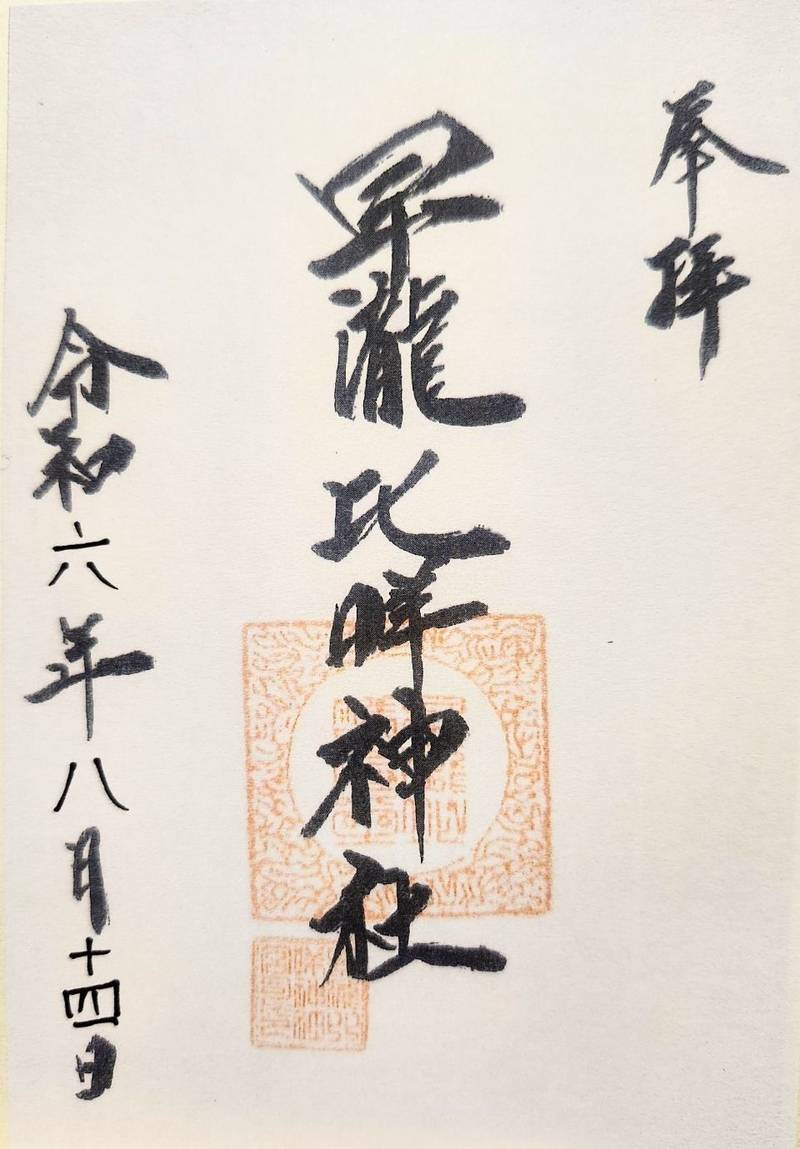 奉拝
早瀧比咩神社
令和六年八月十四日